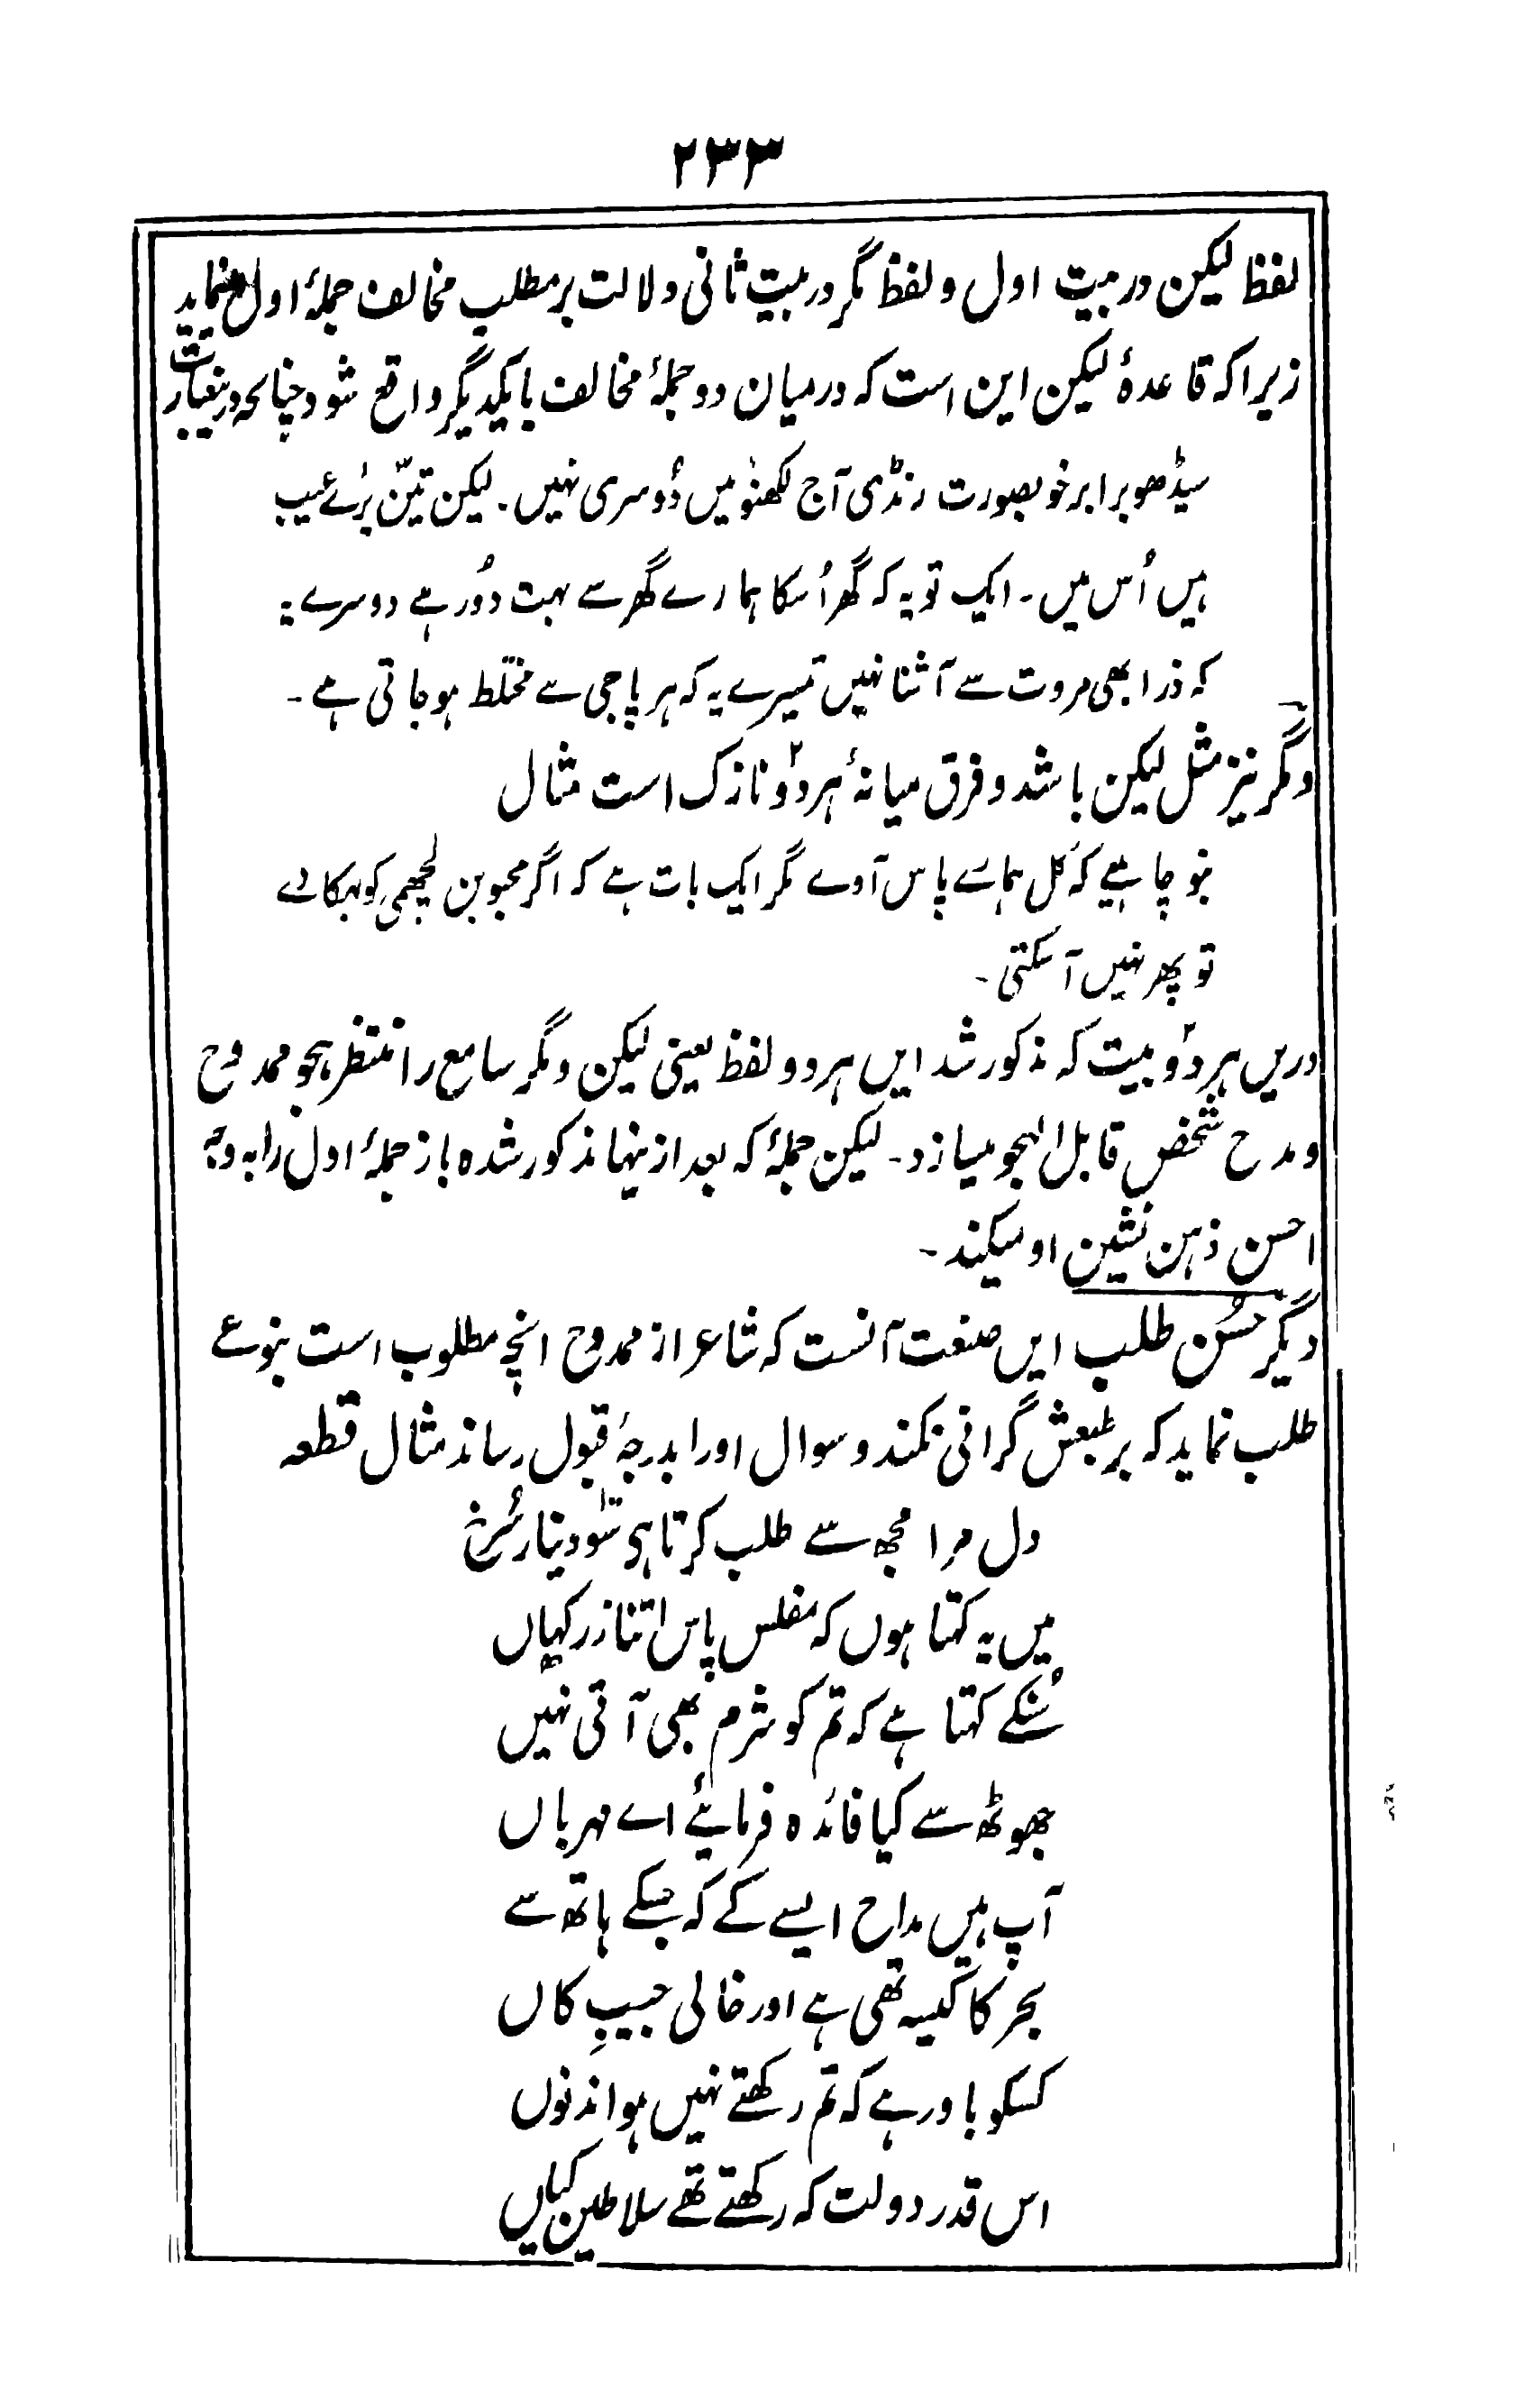 ۲۳۳
لفظ لیکن در بیت اول و لفظ مگر در بیت ثانی دلالت بر مطلب مخالف جملۂ اول مینماید
زیرا کہ قاعدۂ لیکن این است کہ درمیان دو جملۂ مخالف بایکدیگر واقع شود چنانکہ درینعبارت
سیڈھو برابر خوبصورت رنڈی آج لکھنؤ میں دُوسری نہیں۔ لیکن تینؔ بڑے عیب
ہیں اُس میں۔ ایک تو یہ کہ گھر اُسکا ہمارے گھر سے بہت دُور ہے دوسرے یہ
کہ ذرا بھی مروت سے آشنا نہیں تیسرے یہ کہ ہر پاجی سے مختلط ہو جاتی ہے۔
و مگر نیز مثل لیکن باشد و فرق میانۂ ہر دو نازک است مثال
بنو چاہیے کہ کل ہمارے پاس آوے مگر ایک بات ہے کہ اگر محبوبن لچھمی کو بہکا دے
تو پھر نہیں آ سکتی۔
دریں ہر دو بیت کہ مذکور شد ایں ہر دو لفظ یعنی لیکن و مگر سامع را منتظر ہجو ممدوح
و مدح شخص قابل الہجو میسازد۔ لیکن جملۂ کہ بعد ازینہا مذکور شدہ باز جملۂ اول را بہ وجہ
احسن ذہن نشین او میکند۔
دیگر حُسن طلب ایں صنعت آنست کہ شاعر از ممدوح انچہ مطلوب است بنوعے
طلب نماید کہ بر طبعش گرانی نکند و سوال اورا بدرجۂ قبول رساند مثال قطعہ
دل مرا مجھ سے طلب کرتا ہی سَو دینار سُرخ
میں یہ کہتا ہوں کہ مفلس پاس اتنا زر کہاں
سُنکے کہتا ہے کہ تم کو شرم بھی آتی نہیں
جھوٹھ سے کیا فائدہ فرمائیے اے مہرباں
آپ ہیں مداح ایسے کے کہ جسکے ہاتھ سے
بحر کا کیسہ تھی ہے اور خالی جیبِ کاں
کسکو باور ہے کہ تم رکھتے نہیں ہو اندنوں
اس قدر دولت کہ رکھتے تھے سلاطین کیاں